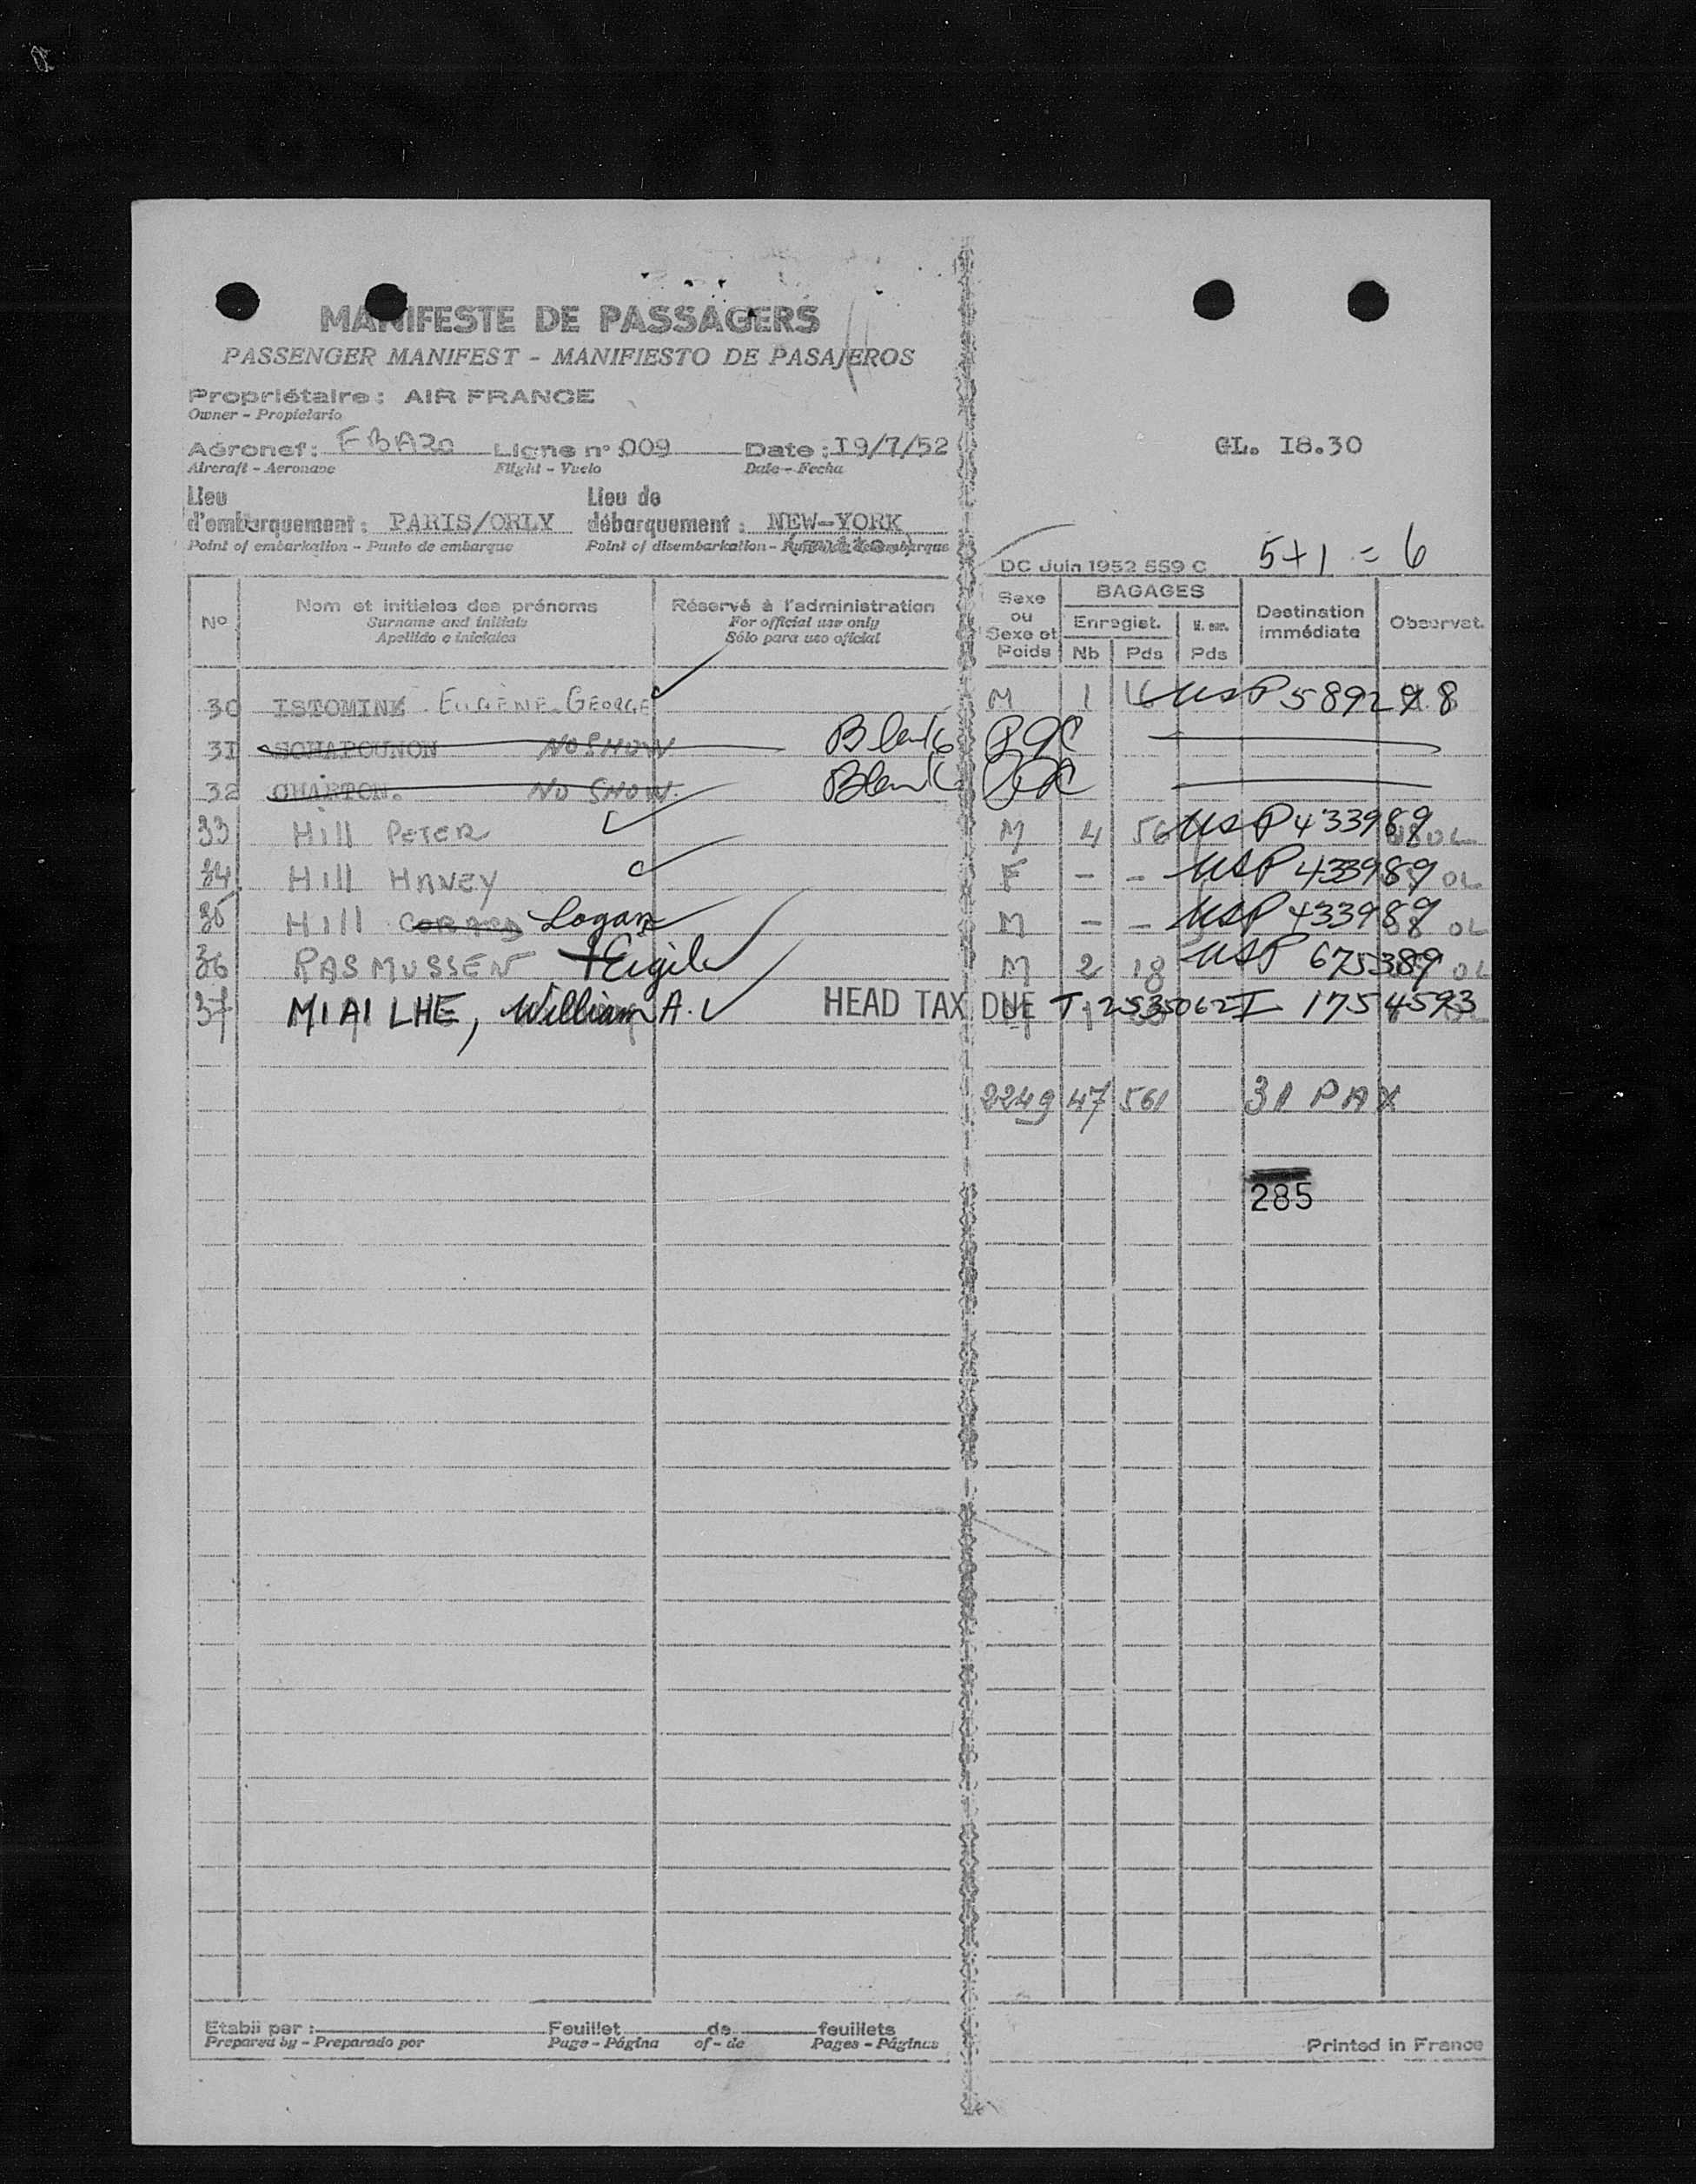 MANIFESTE DE PASSAGERS
PASSENGER MANIFEST - MANIFIESTO DE PASAJEROS
Propriétaire : AIR FRANCE
Owner - Propietario
Aéronef : FBAZO Ligne n° 009 Date : I9/7/52
Aircraft - Aeronave Flight - Vuelo Date - Fecha
GL. I8.30
Lieu d'embarquement : PARIS/ORLY Lieu de débarquement : NEW-YORK
Point of embarkation - Punto de embarque Point of disembarkation -
DC Juin 1952 559 C 5+1 = 6
N° Nom et initiales des prénoms Réservé à l'administration Sexe ou Sexe et Poids BAGAGES Destination immédiate Observat.
Surname and initials For official use only Enregist. N. enr.
Apellido e iniciales Sólo para uso oficial Nb Pds Pds
30 ISTOMINE EUGENE GEORGE M 1 16 USP 589298
3I NO SHOW Blank
32 CHARTON. NO SHOW. Blank
33 Hill PETER M 4 56 USP 433989 OL
34 Hill HANEY F - - USP 433989 OL
35 Hill Logan M - - USP 433989 OL
36 RASMUSSEN Eigil M 2 18 USP 675389 OL
37 MIAILHE, William A. HEAD TAX DUE T 2535062 I 1754593
2249 47 561 31 PAX
285
Etabli par : Feuillet de feuillets
Prepared by - Preparado por Page - Página of - de Pages - Páginas
Printed in France